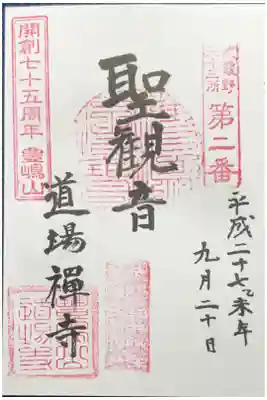 第二番
平成二十七乙未年
九月二十日
聖観音
道場禅寺
開創七十五周年 豊嶋山